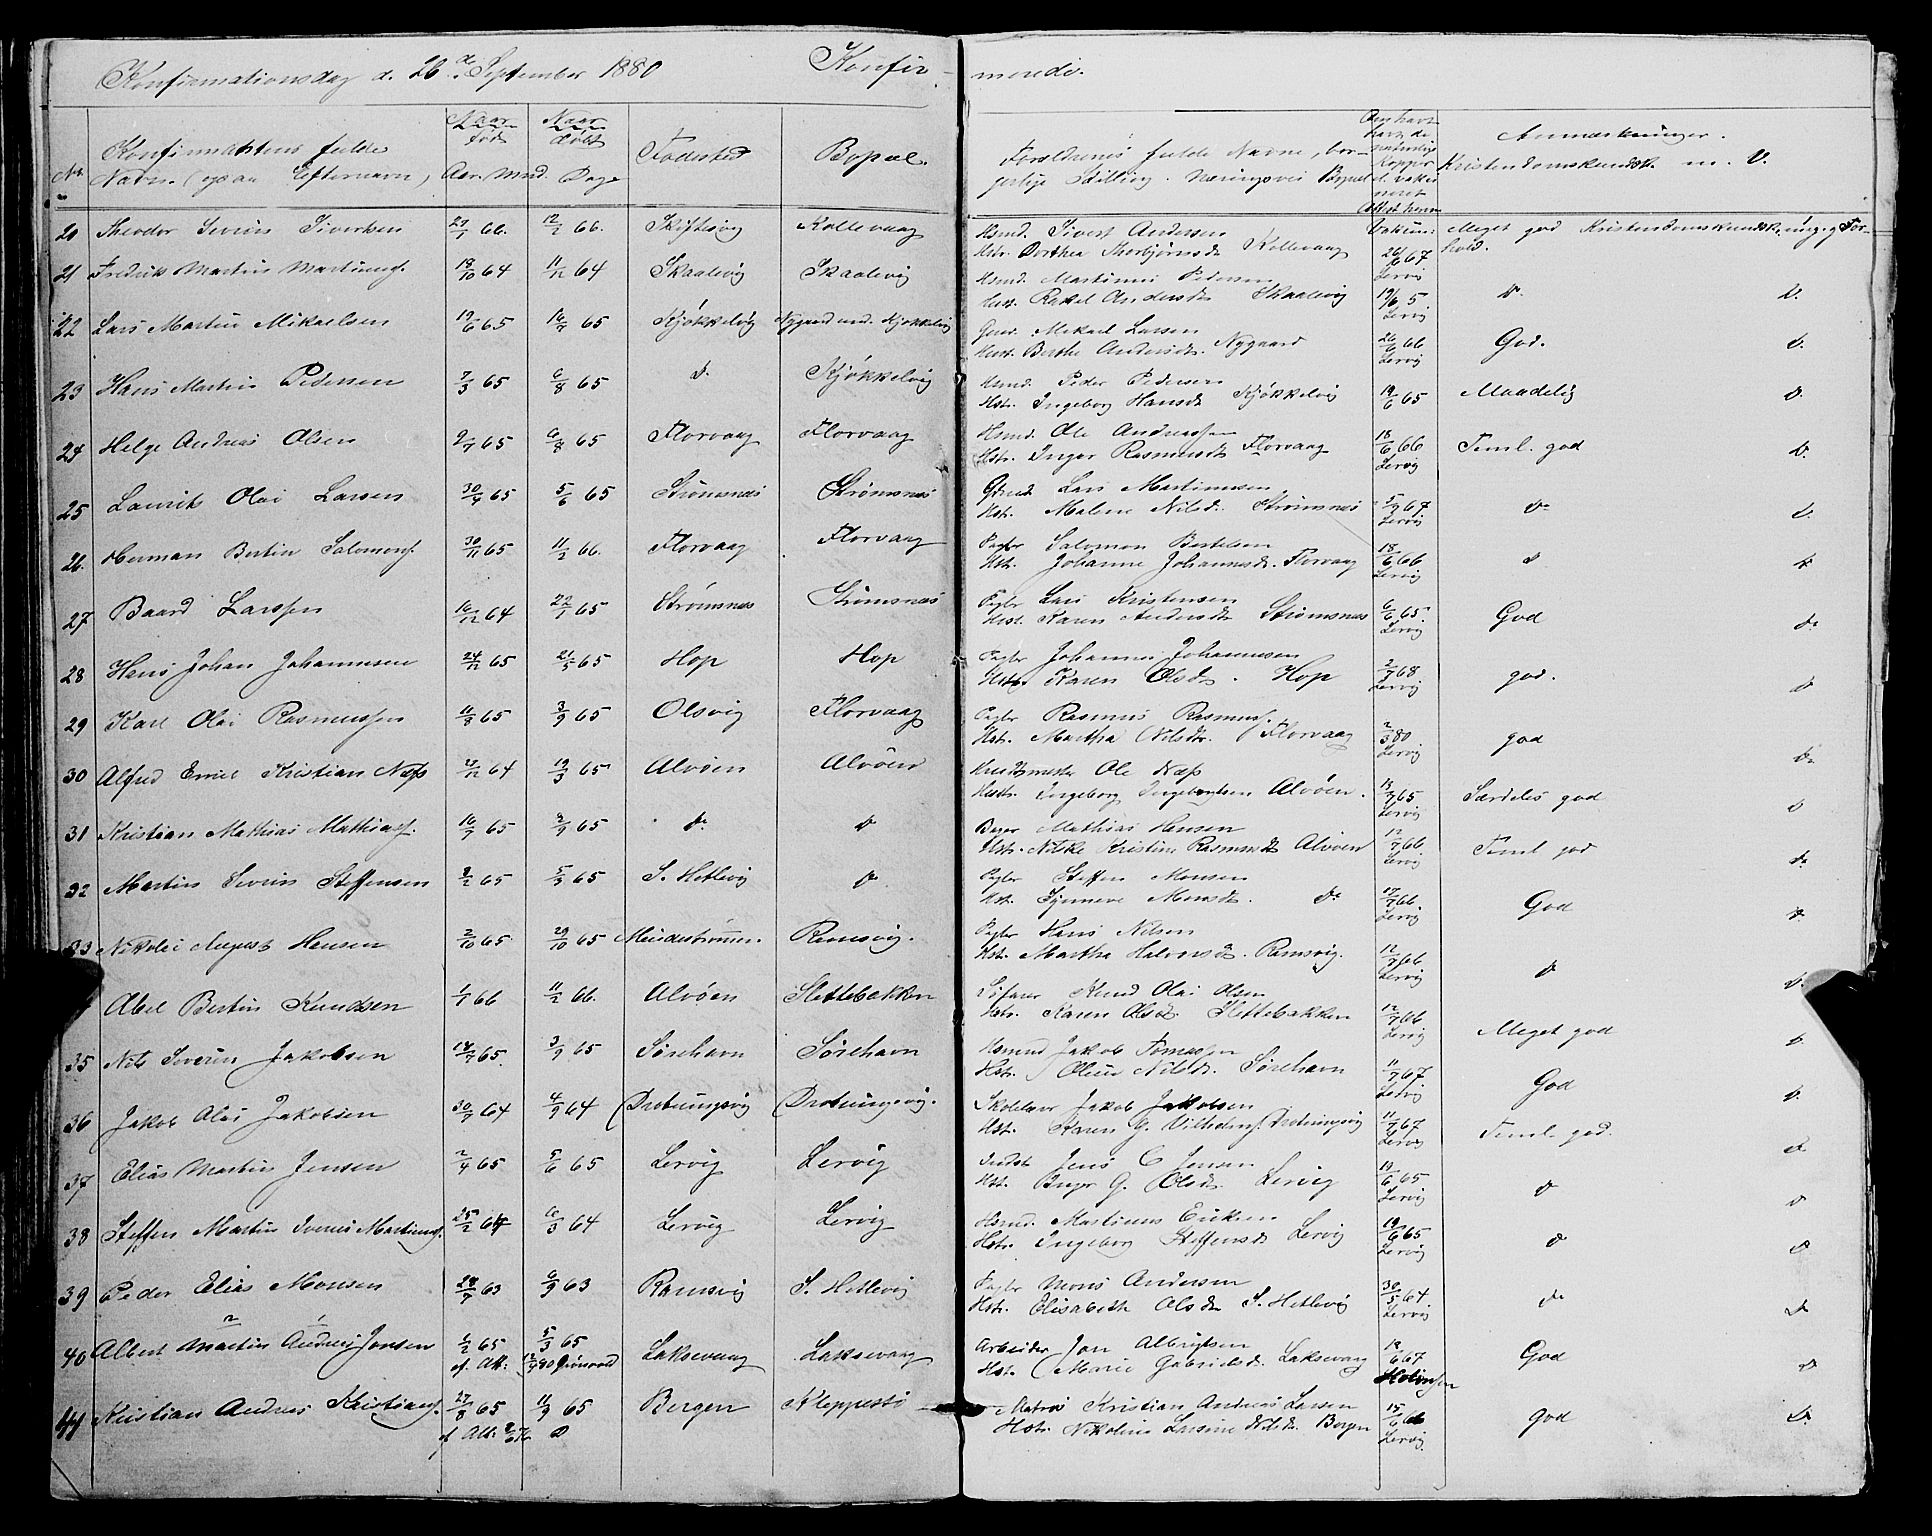 Konfirmationsdag d. 26d September 1880 Konfir-
merede.
No. Konfirmantens fulde Navn (ogsaa Efternavn) Naar født Naar døbt Aar. Mnd. Dag Fødested Bopæl.
Forældrenes fulde Navne, borgerlige Stilling. Næringsvei Bopæl Anmærkninger. Kristendomskundsk. m. V.
20 Theodor Severin Sivertsen 27/1 66. 12/2 66. Skiftesvig Kollevaag
Hsmd. Sivert Andersen Hstr. Dorthea Thorbjørnsdt Kollevaag 26/6 67 Lervig Meget god Kristendomskundsk.
21 Fredrik Martin Martinuss. 18/10 64 11/12 64 Skaalevig Skaalevig
Hsmd. Martinus Pedersen Hust. Rakel Andersdt Skaalevig Lervig Do. Do.
22 Lars Martin Mikaelsen 19/6 65 16/7 65 Kjøkkelvig Nygaard und. Kjøkkelvig
Grd. Mikael Larsen Hust. Berthe Andersdt. Nygaard 26/6 66 Lervig God. Do.
23 Hans Martin Pedersen 7/3 65 6/8 65 do. Kjøkkelvig
Hsmd. Peder Pedersen Hstr. Ingeborg Hansdt Kjøkkelvig 19/6 65 Maadelig Do.
24 Helge Andreas Olsen 9/7 65 6/8 65 Florvaag Florvaag
Hsmd. Ole Andreassen Hstr. Inger Rasmusdt Florvaag 18/6 66 Lervig Teml. god Do.
25 Laurits Olai Larsen 30/4 65 5/6 65 Strømsnes Strømsnes
Grmd. Lars Martinusen Hstr. Malene Nilsdt. Strømsnes 5/7 67 Lervig Do Do.
26. Herman Bertin Salomons. 30/11 65 11/2 66. Florvaag Florvaag
Pagter Salomon Bertelsen Hst. Johanne Johannesdt. Florvaag 18/6 66 Lervig Do Do
27 Baard Larssen 16/12 64 22/1 65 Strømsnes Strømsnes
Pagter Lars Kristensen Hust. Karen Andersdt Strømsnes 6/6 65. Lervig God Do
28 Hans Johan Johannesen 65 21/5 65 Hop Hop
Pagter Johannes Johannesen Hstr Karen Olsdt. Hop 2/7 68 Lervig god. Do
29 Karl Olai Rasmussen 11/8 65 3/9 65 Olsvig Florvaag
Pagter Rasmus Rasmuss. Hstr. Martha Nilsdt. Florvaag 2/3 80 Lervig god Do
30 Alfred Emil Kristian Næss 64 19/3 65 Alvøen Alvøen
Ole Næss Hustr. Ingeborg Ingebrigtsen Alvøen. 65 Lervig Særdeles god Do
31 Kristian Mathias Mathiass. 16/7 65 3/9 65 do. do
Bager Mathias Hansen Hstr. Nilske Kristine Rasmusdt Alvøen 12/7 66 Lervig Teml god Do
32 Martin Severin Steffensen 8/2 65 5/3 65 S. Hetlevig do
Pagter Steffen Monsen Hst. Monsdt. Do. 17/7 66. Lervig God Do.
33 Nikolai August Hansen 2/10 65 29/10 65 Ramsvig.
Pagter Hans Nilsen Hst. Martha Halvorsdt. Ramsvig. 12/7 66 Lervig Do Do.
Abel Bertin Knudsen 1/1 66 11/2 66. Alvøen Slettebakken
Søfarer Knud Olai Olsen Hstr. Karen Olsdt. Slettebakken 12/7 66 Lervig Meget god Do.
35 Nils Severin Jakobsen 14/7 65. 3/9 65 Sørehavn Sørehavn
Hsmnd Jakob Tomassen Hstr. Oline Nilsdt. Sørehavn 11/7 67 Lervig God Do.
36 Jakob Olai Jakobsen 30/7 64 4/9 64 Drotningsvig Drotningsvig.
Skolelærer Jakob Jakobsen Hst. Karen G. Vilhelms. Drotningsvig 11/7 67 Lervig Teml. god. Do
37 Elias Martin Jensen 2/4 65 5/6 65 Lervig Lervig
Indst Jens C Jensen Hst. G. Olsdt. Lervig 19/6 65 Lervig Do Do
38 Steffen Martin Martinuss. 25/2 64 6/3 64 Lervig Lervig
Hsmd. Martinus Eriksen Hstr. Ingeborg Steffensdt Lervig 19/6 65 Lervig Do Do
39 Peder Elias Monsen 28/7 63 6/9 63 Ramsvig S. Hetlevig
Pagter Mons Andersen Hstr. Elisabeth Olsdt S. Hetlevig 30/5 64 Lervig Do Do
40 Albert Martin Andreas Jonsen 1/2 65 5/3 65 Laksevaag Laksevaag
Arbeider Jon Albrigtsen Hst. Marie Gabrielsdt. Laksevaag 18/6 67 God Do
41 Kristian Andreas Kristians. 27/8 65 11/9 65 Bergen Kleppestø
Matros Kristian Andreas Larsen Hstr. Nikoline Larsine Nilsdt. Bergen 15/6 66 Lervig. God Do.